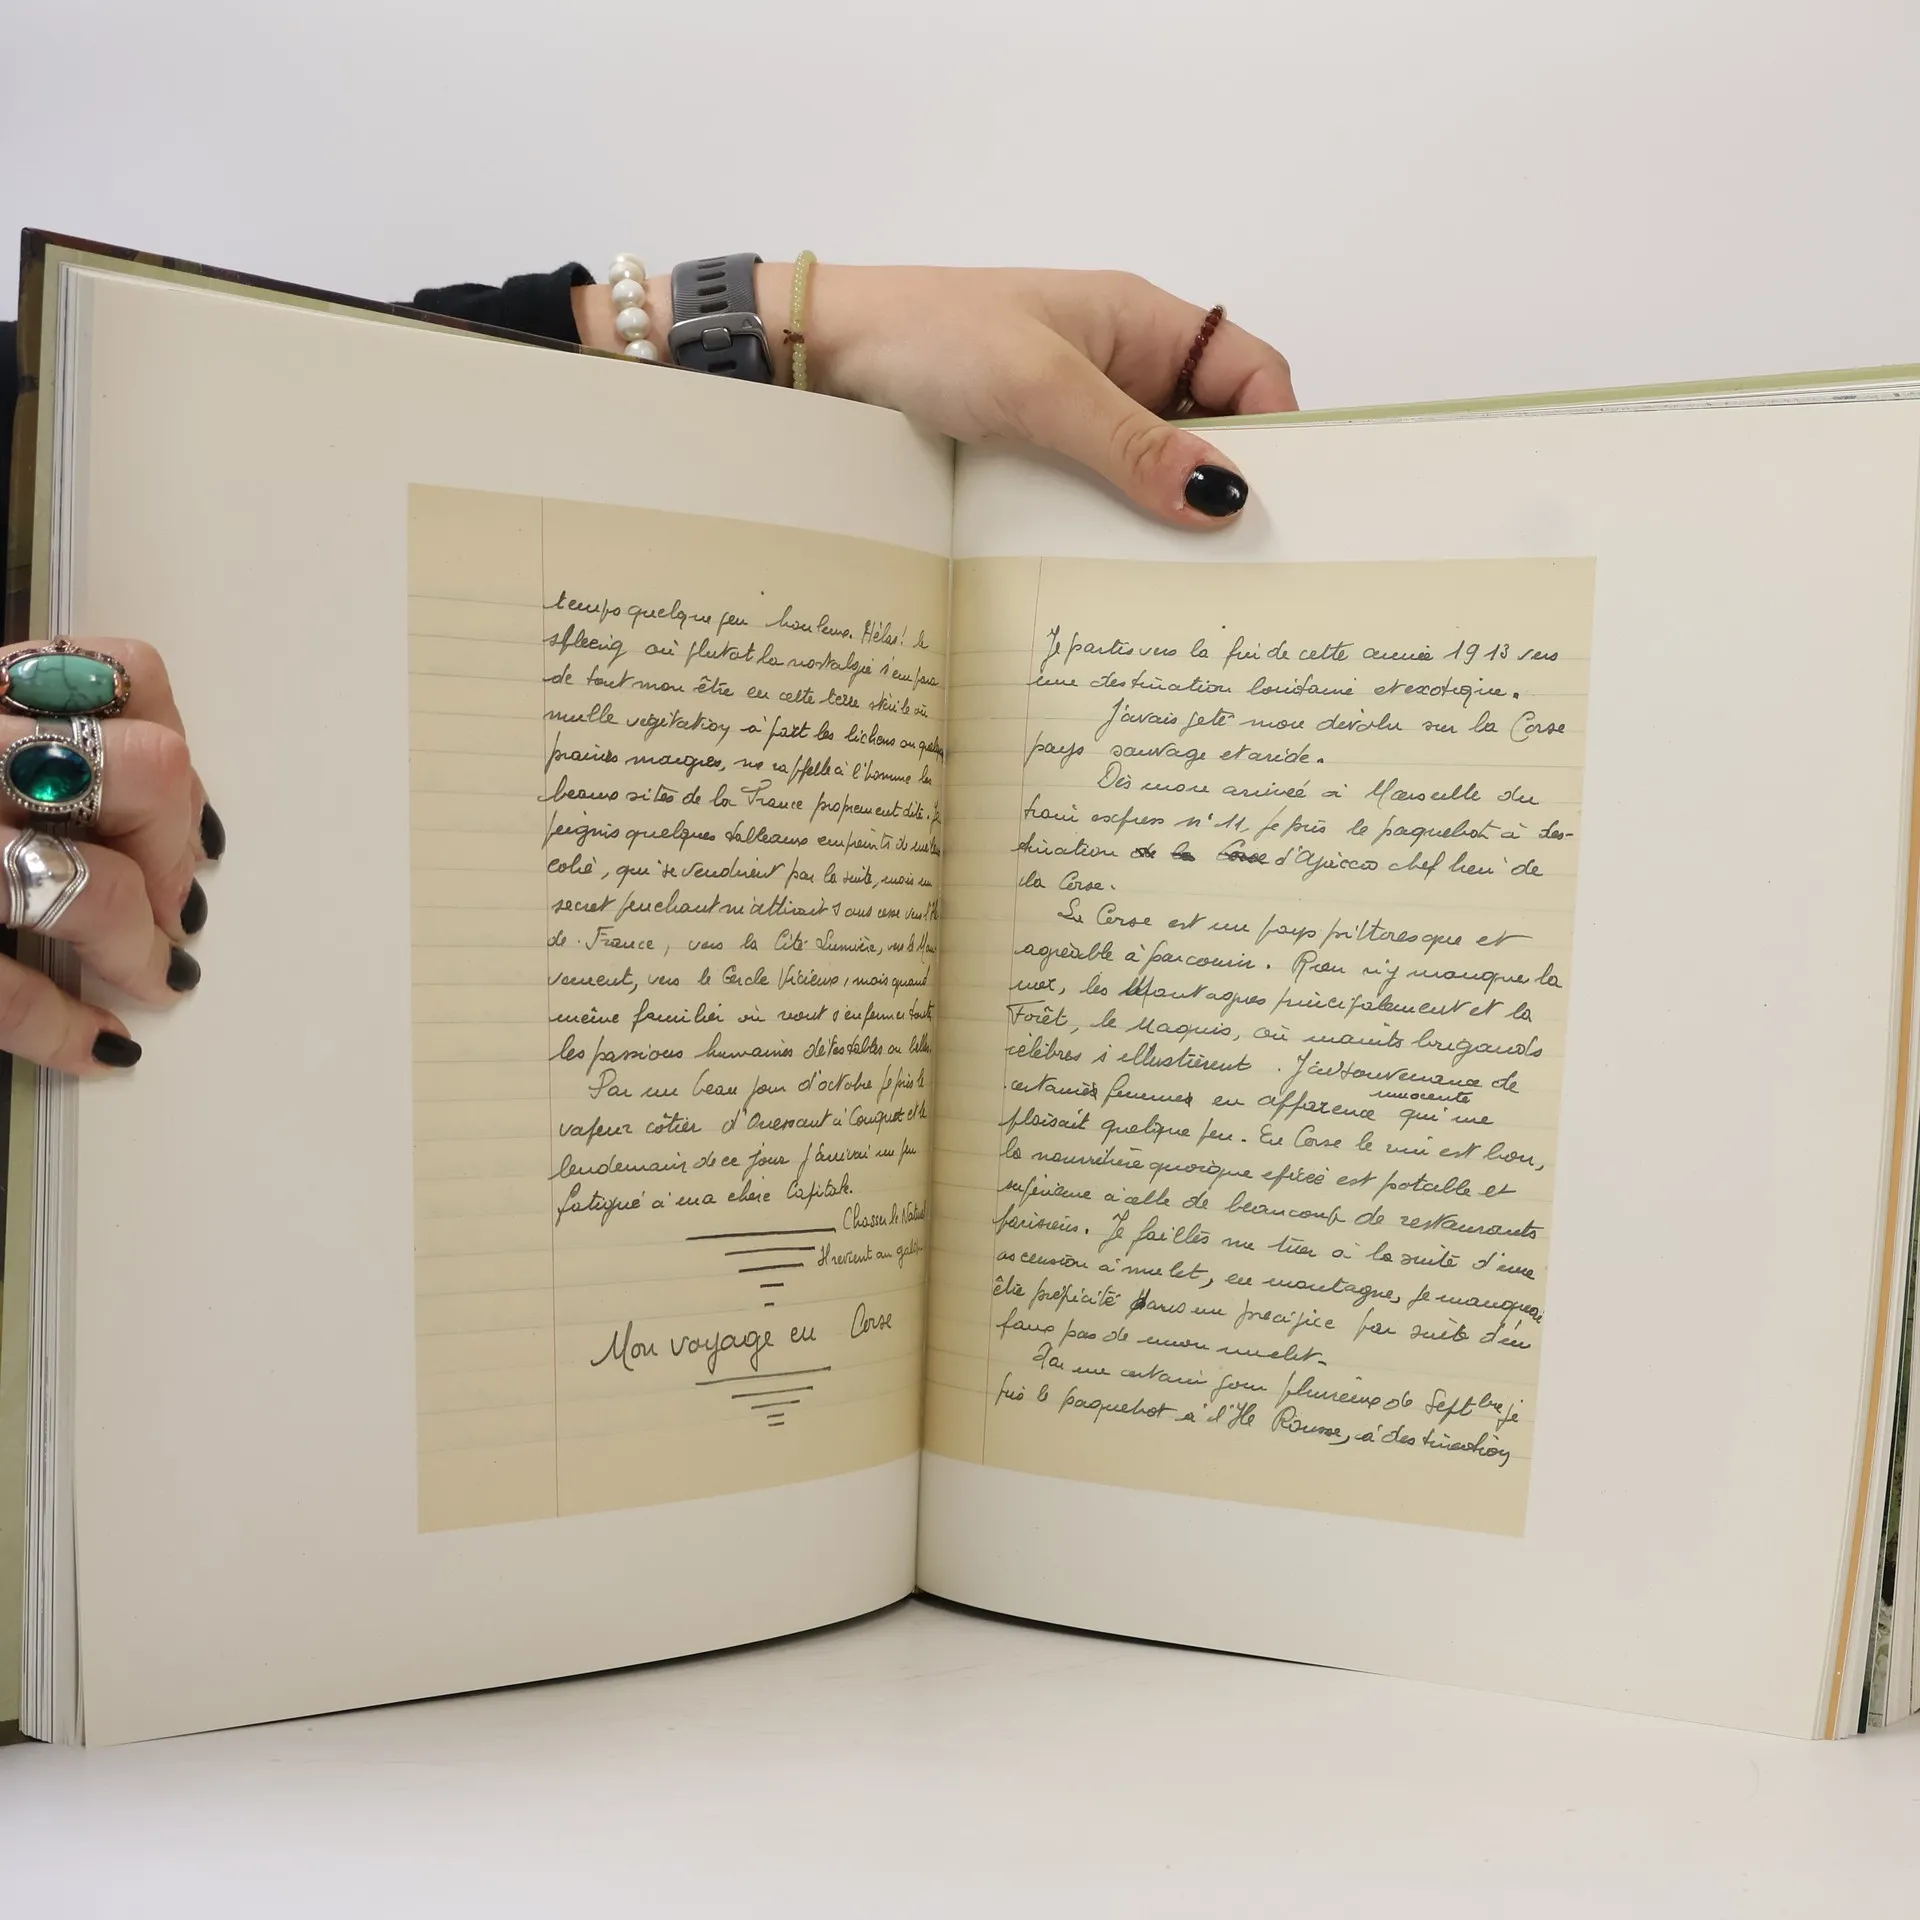 temps quelque peu houleux. Hélas! le
spleeng où plutot la nostalgie s'empara
de tout mon être en cette terre stérile où
nulle végétation, à part les lichens ou quelques
prairies maigres, ne rappelle à l'homme les
beaux sites de la France proprement dite. Je
peignis quelques tableaux empreints de
colie, qui se vendirent par la suite, mais un
secret penchant m'attirait sans cesse vers l'Ile
de France, vers la Cité Lumière, vers le Mou
vement, vers le Cercle Vicieux, mais quand
même familier où vont s'enfermer toutes
les passions humaines détestables ou belles.
Par un beau jour d'octobre je pris le
vapeur côtier d'Ouessant à Conquet et le
lendemain de ce jour j'arrivai un peu
fatigué à ma chère Capitale.
Chassez le Naturel
Il revient au galop
Mon voyage en Corse
Je partis vers la fin de cette année 1913 vers
une destination lointaine et exotique.
J'avais jeté mon dévolu sur la Corse
pays sauvage et aride.
Dès mon arrivée à Marseille du
train express n° 11, je pris le paquebot à des-
tination de la Corse d'Ajaccio chef lieu de
la Corse.
La Corse est un pays pittoresque et
agréable à parcourir. Rien n'y manque la
mer, les Montagnes principalement et la
Forêt, le Maquis, où maints brigands
célèbres s'illustrèrent. J'ai souvenance de
certaines femmes en apparence innocente qui me
plaisait quelque peu. En Corse le vin est bon,
la nourriture quoique épicée est potable et
supérieure à celle de beaucoup de restaurants
parisiens. Je faillis me tuer à la suite d'une
ascension à mulet, en montagne, je manquai
être précipité dans un précipice par suite d'un
faux pas de mon mulet.
Par un certain jour pluvieux de Septbre je
pris le paquebot à l'Ile Rousse, à destination